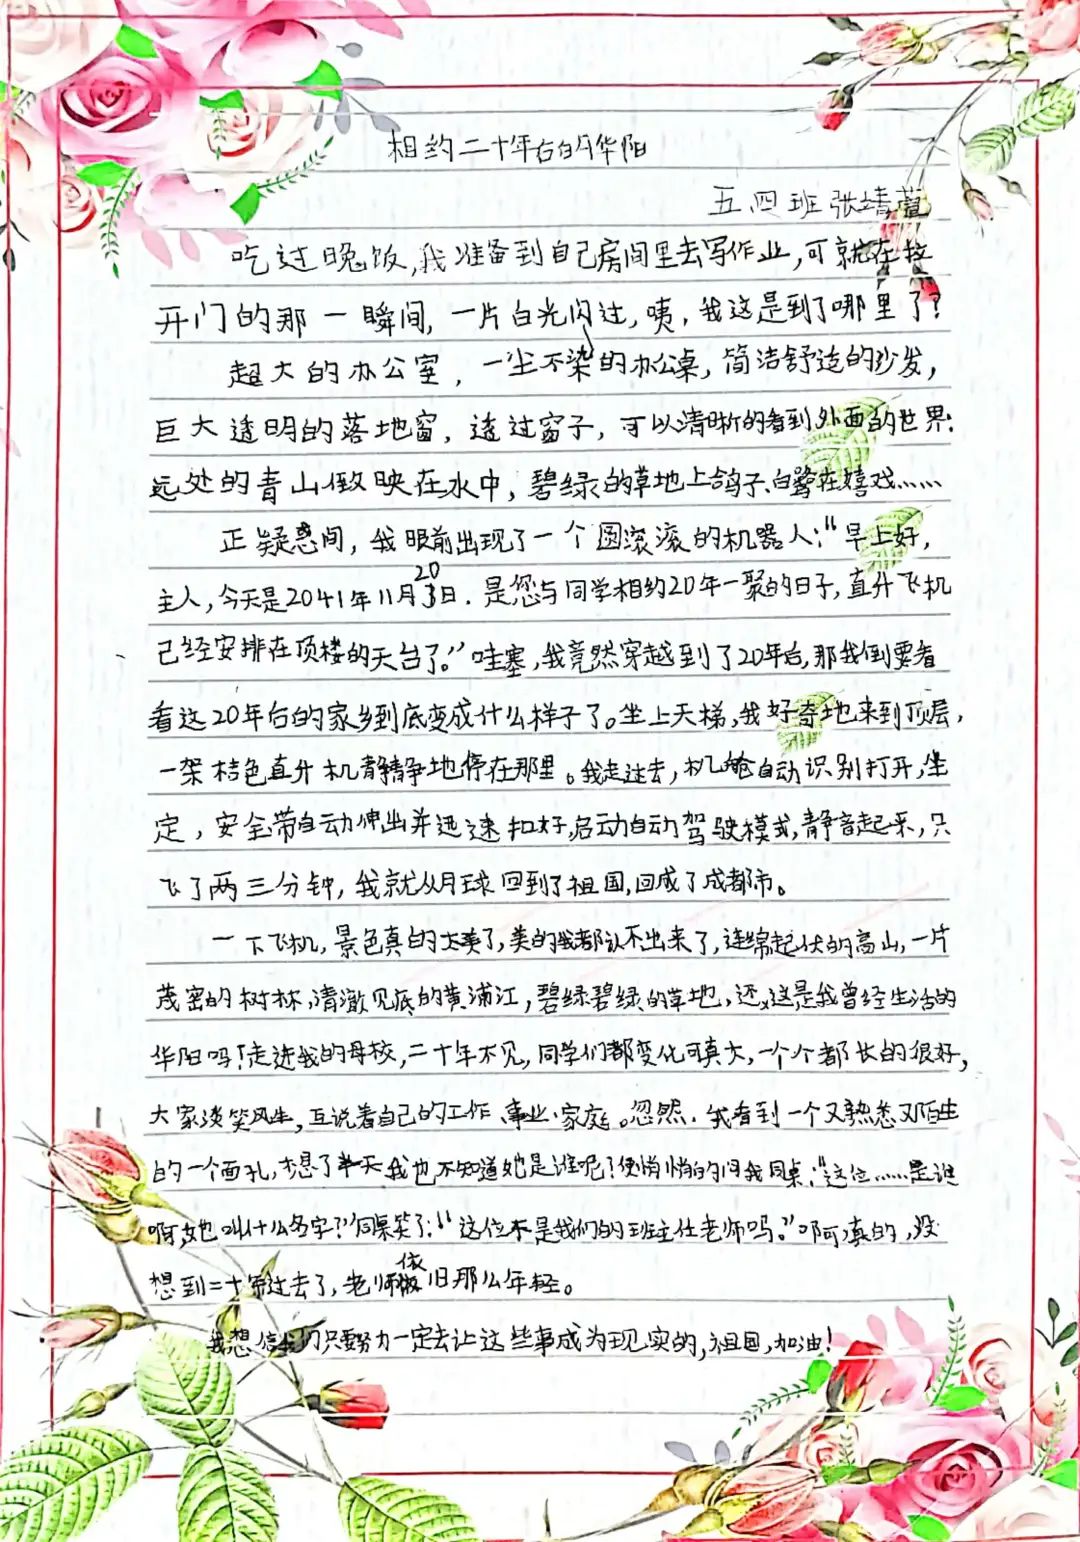 相约二十年后的华阳
五.四班张靖萱
吃过晚饭,我准备到自己房间里去写作业,可就在我
开门的那一瞬间,一片白光闪过,咦,我这是到了哪里了?
超大的办公室,一尘不染的办公桌,简洁舒适的沙发,
巨大透明的落地窗,透过窗子,可以清晰的看到外面的世界:
远处的青山倒映在水中,碧绿的草地上鸽子、白鹭在嬉戏……
正疑惑间,我眼前出现了一个圆滚滚的机器人:“早上好,
主人,今天是2041年11月20日.是您与同学相约20年一聚的日子,直升飞机
已经安排在顶楼的天台了。”哇塞,我竟然穿越到了20年后,那我倒要看
看这20年后的家乡到底变成什么样子了。坐上天梯,我好奇地来到顶层,
一架桔色直升机静静地停在那里。我走过去,机舱自动识别打开,坐
定,安全带自动伸出并迅速扣好,启动自动驾驶模式,静音起飞,只
飞了两三分钟,我就从月球回到了祖国,回成了成都市。
一下飞机,景色真的太美了,美的我都认不出来了,连绵起伏的高山,一片
茂密的树林,清澈见底的黄浦江,碧绿碧绿的草地,还,这是我曾经生活的
华阳吗!走进我的母校,二十年不见,同学们都变化可真大,一个个都长的很好,
大家谈笑风生,互说着自己的工作、事业、家庭。忽然,我看到一个又熟悉又陌生
的一个面孔,想了半天我也不知道她是谁呢?便悄悄的问我同桌:“这位……是谁
啊,她叫什么名字?”同桌笑了:“这位不是我们的班主任老师吗。”啊,真的,没
想到二十年过去了,老师依旧那么年轻。
我想信我们只要努力一定去让这些事成为现实的,祖国,加油!